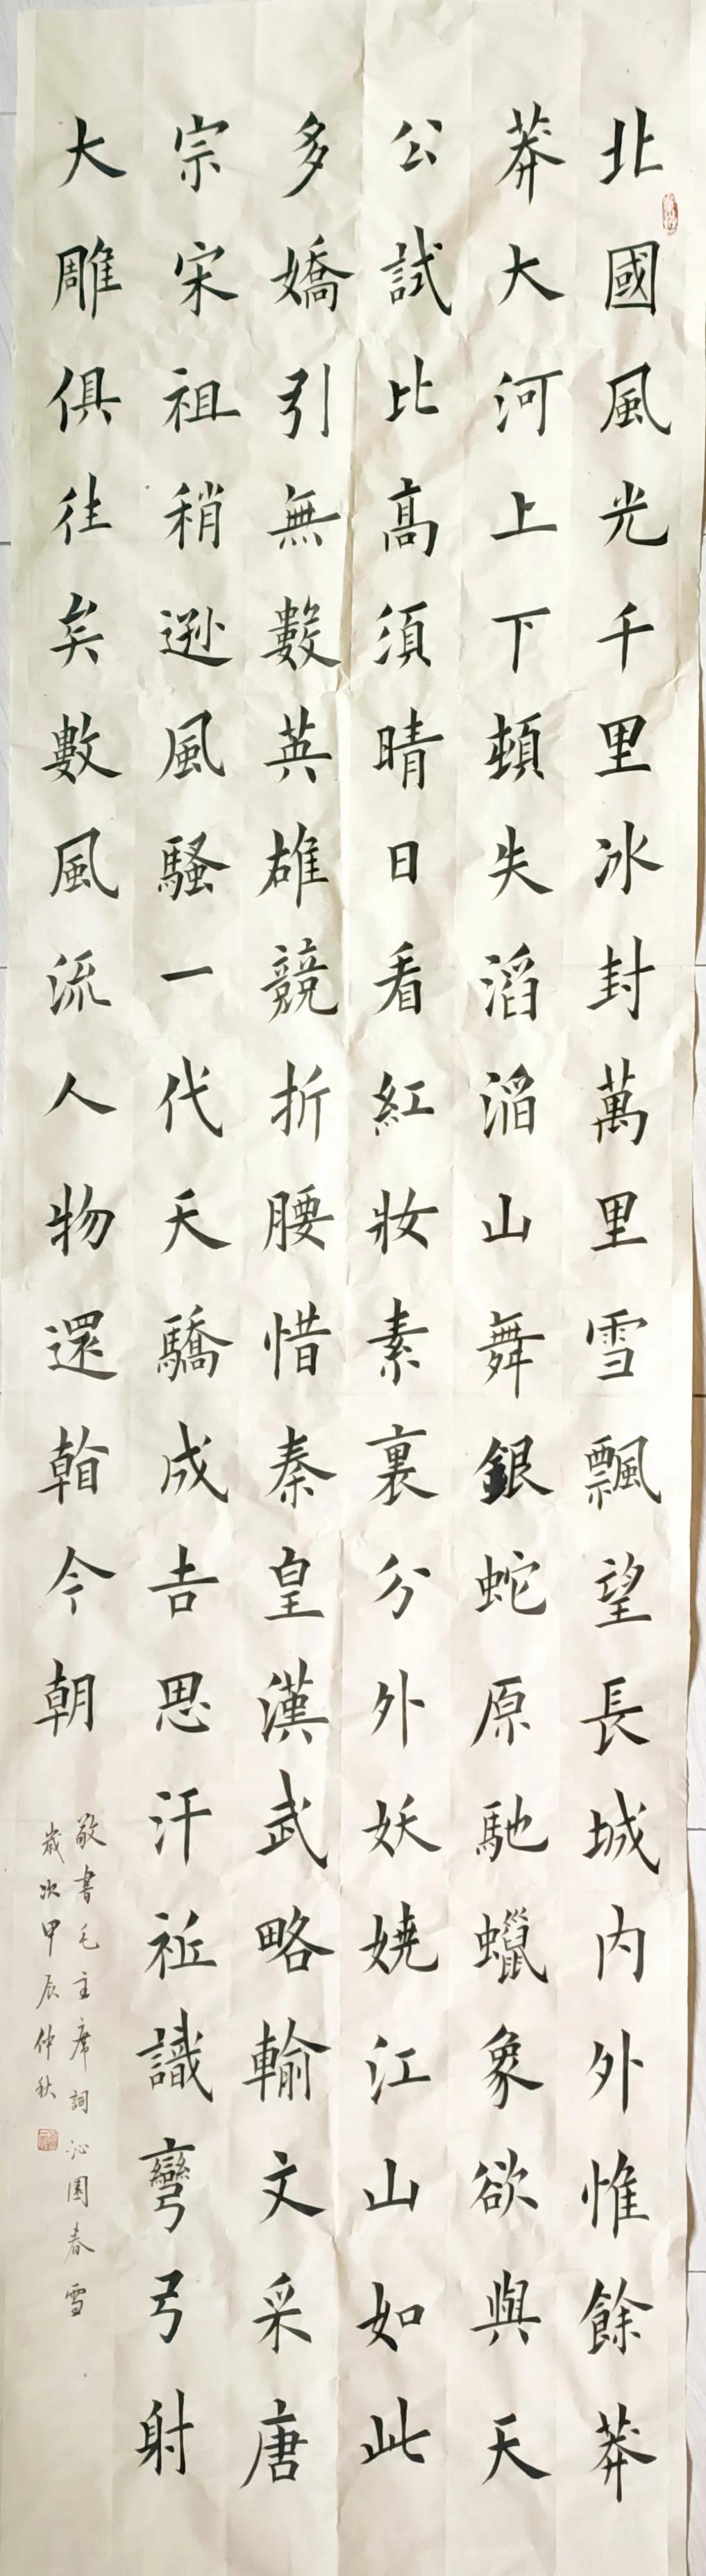 北國風光千里冰封萬里雪飄望長城内外惟餘莽
莽大河上下頓失滔滔山舞銀蛇原馳蠟象欲與天
公試比高須晴日看紅妝素裏分外妖嬈江山如此
多嬌引無數英雄競折腰惜秦皇漢武略輸文采唐
宗宋祖稍遜風騷一代天驕成吉思汗祗識彎弓射
大雕俱往矣數風流人物還看今朝
敬書毛主席詞沁園春雪
歲次甲辰仲秋